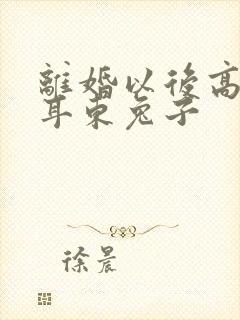 離婚以後高
耳東兔子
徐晨